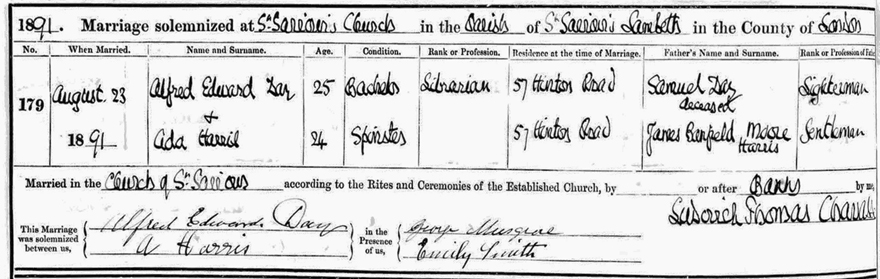 1891. Marriage solemnized at St. Saviour's Church in the Parish of St. Saviour's Lambeth in the County of London
No. When Married. Name and Surname. Age. Condition. Rank or Profession. Residence at the time of Marriage. Father's Name and Surname. Rank or Profession of Fath
179 August 23 Alfred Edward Day 25 Bachelor Librarian 57 Hinton Road Samuel Day Lighterman
deceased
&
1891 Ada Harris 24 Spinster 57 Hinton Road James Banfield Moore Gentleman
Harris
Married in the Church of St. Saviours according to the Rites and Ceremonies of the Established Church, by or after Banns by me,
Thomas
This Marriage was solemnized between us, Alfred Edward Day in the Presence of us, George Musgrove
A Harris Emily Smith